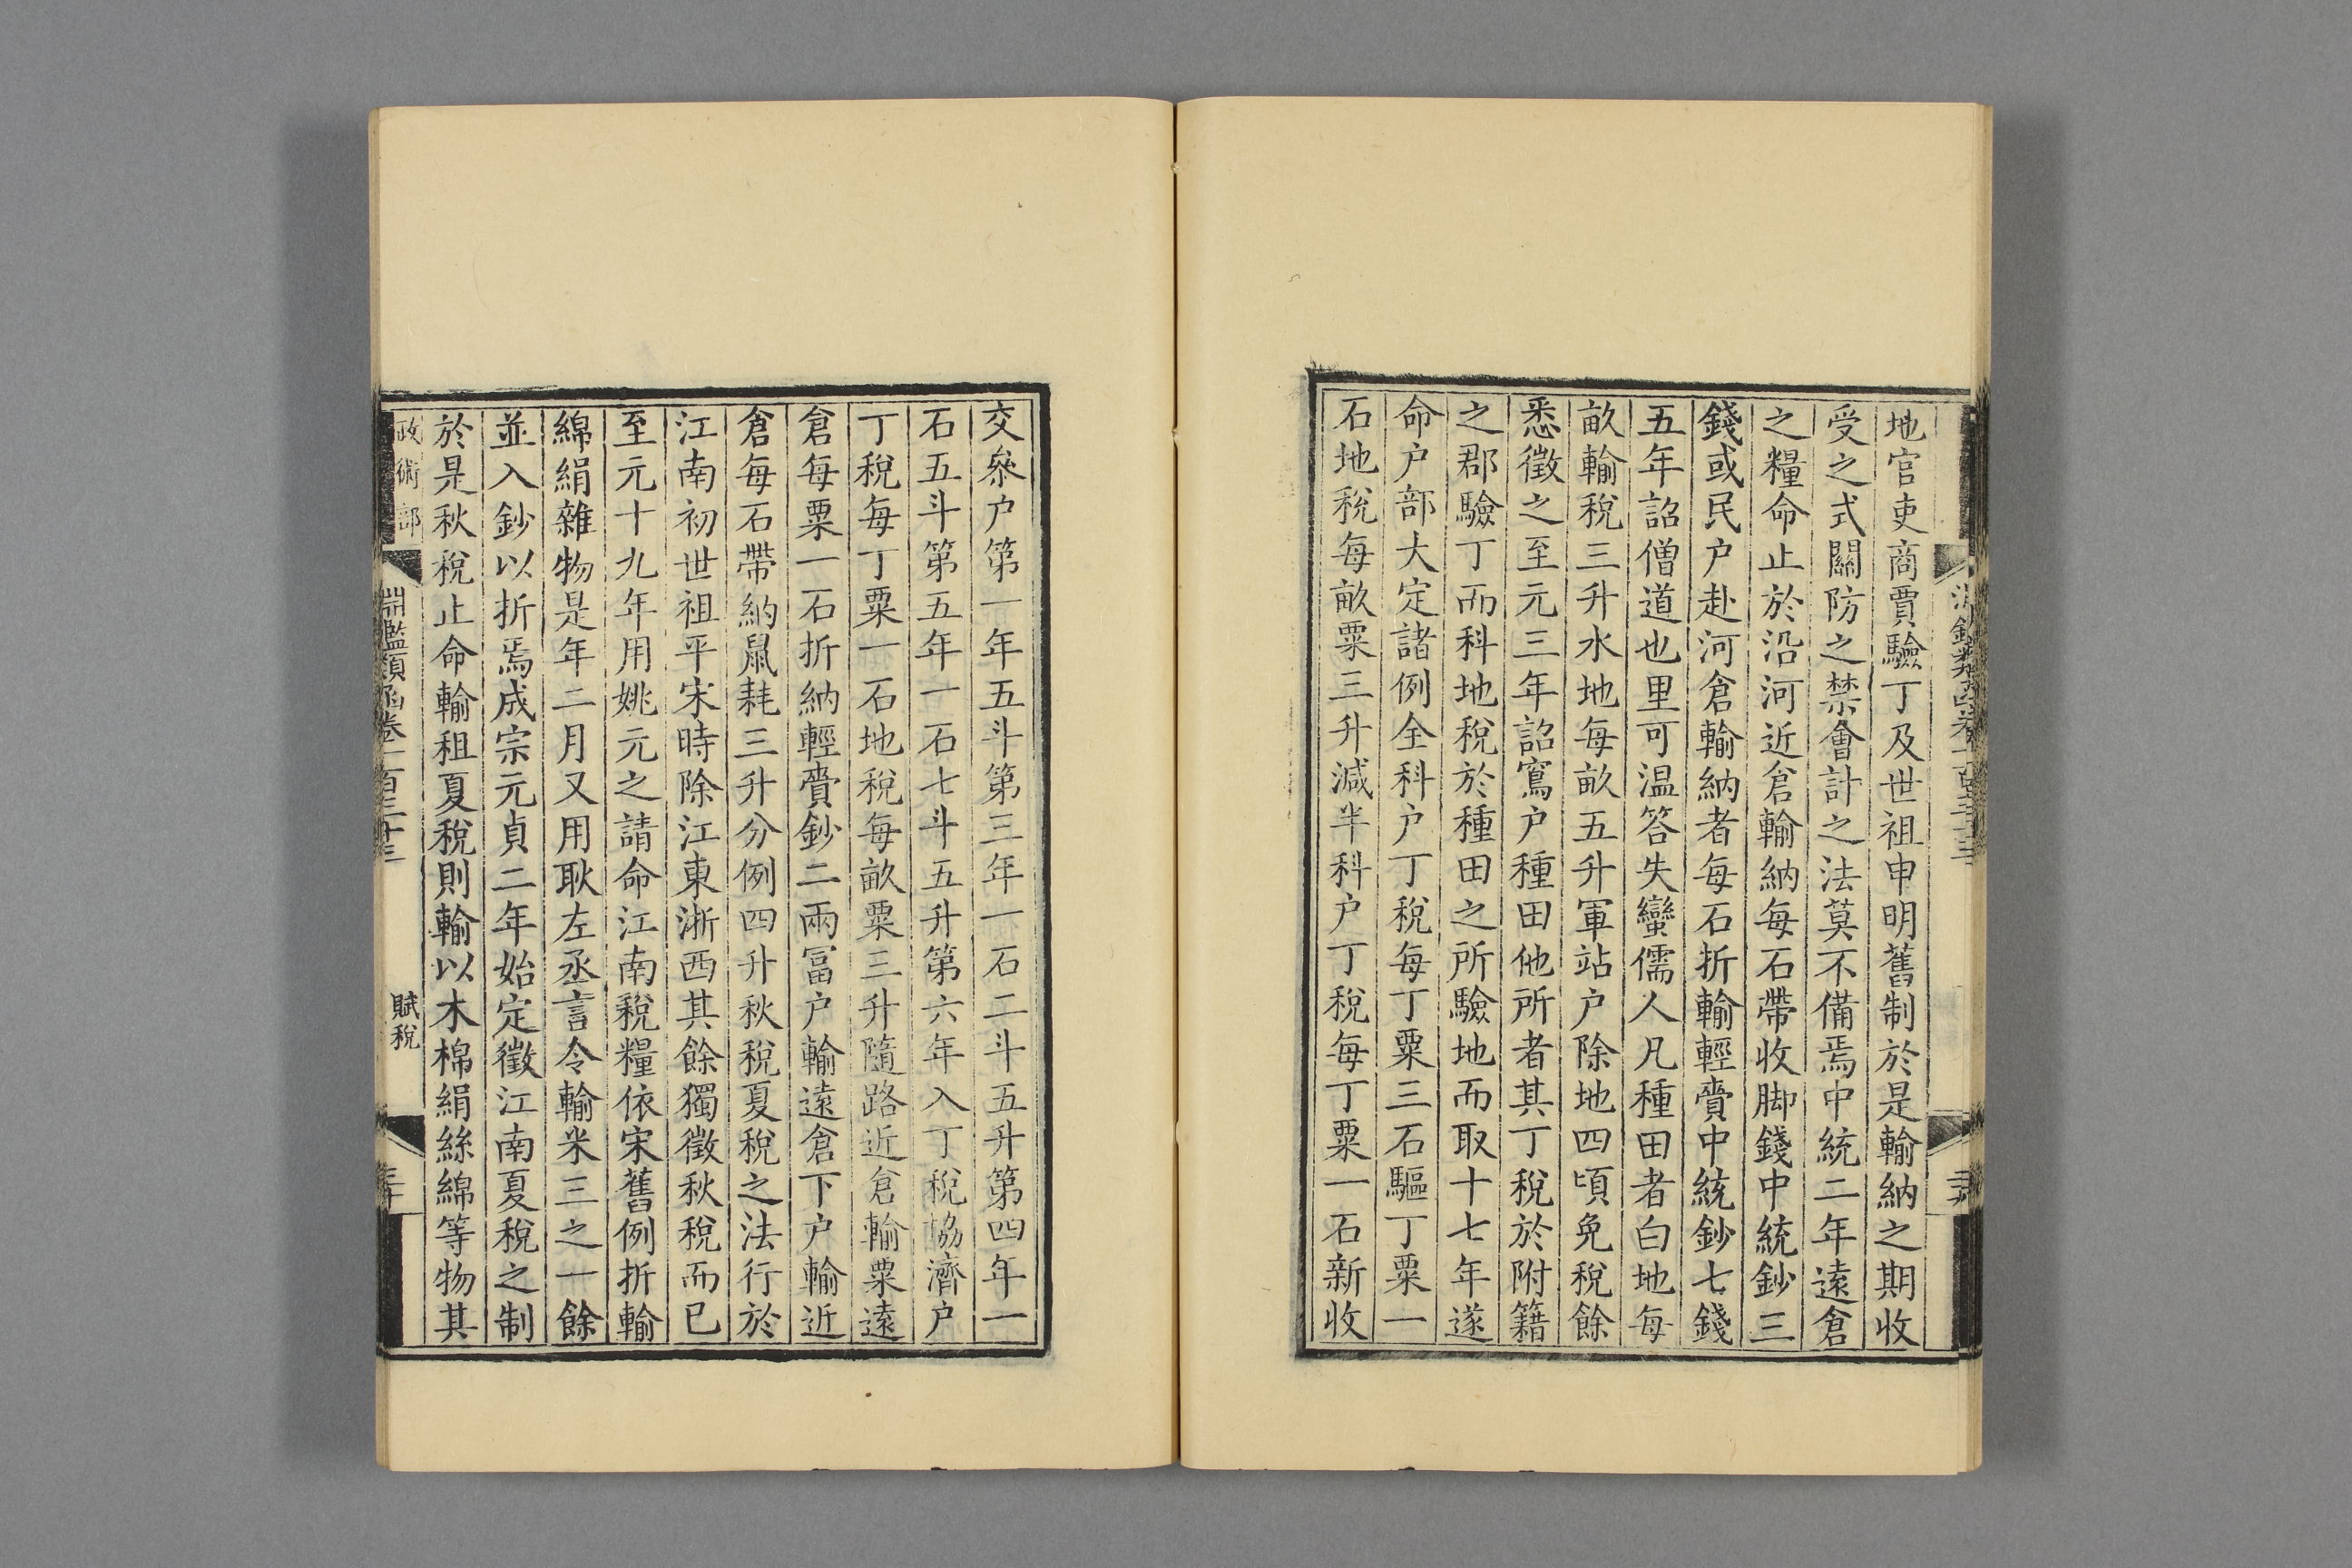 地官吏商賈驗丁及世祖申明舊制於是輸納之期收
受之式關防之禁會計之法莫不備焉中統二年遠倉
之糧命止於沿河近倉輸納每石帶收脚錢中統鈔三
錢或民户赴河倉輸納者每石折輸輕賫中統鈔七錢
五年詔僧道也里可温答失蠻儒人凡種田者白地每
畝輸稅三升水地每畝五升軍站户除地四頃免稅餘
悉徵之至元三年詔窵户種田他所者其丁稅於附籍
之郡驗丁而科地稅於種田之所驗地而取十七年遂
命户部大定諸例全科户丁稅每丁粟三石驅丁粟一
石地稅每畝粟三升減半科户丁稅每丁粟一石新收
交叅户第一年五斗第三年一石二斗五升第四年一
石五斗第五年一石七斗五升第六年入丁稅協濟户
丁稅每丁粟一石地稅每畝粟三升隨路近倉輸粟遠
倉每粟一石折納輕賫鈔二兩冨户輸遠倉下户輸近
倉每石帶納鼠耗三升分例四升秋稅夏稅之法行於
江南初世祖平宋時除江東淅西其餘獨徵秋稅而已
至元十九年用姚元之請命江南稅糧依宋舊例折輸
綿絹雜物是年二月又用耿左丞言令輸米三之一餘
並入鈔以折焉成宗元貞二年始定徵江南夏稅之制
於是秋稅止命輸租夏稅則輸以木棉絹絲綿等物其
政術部
淵鑑類函卷一百三十三
賦稅